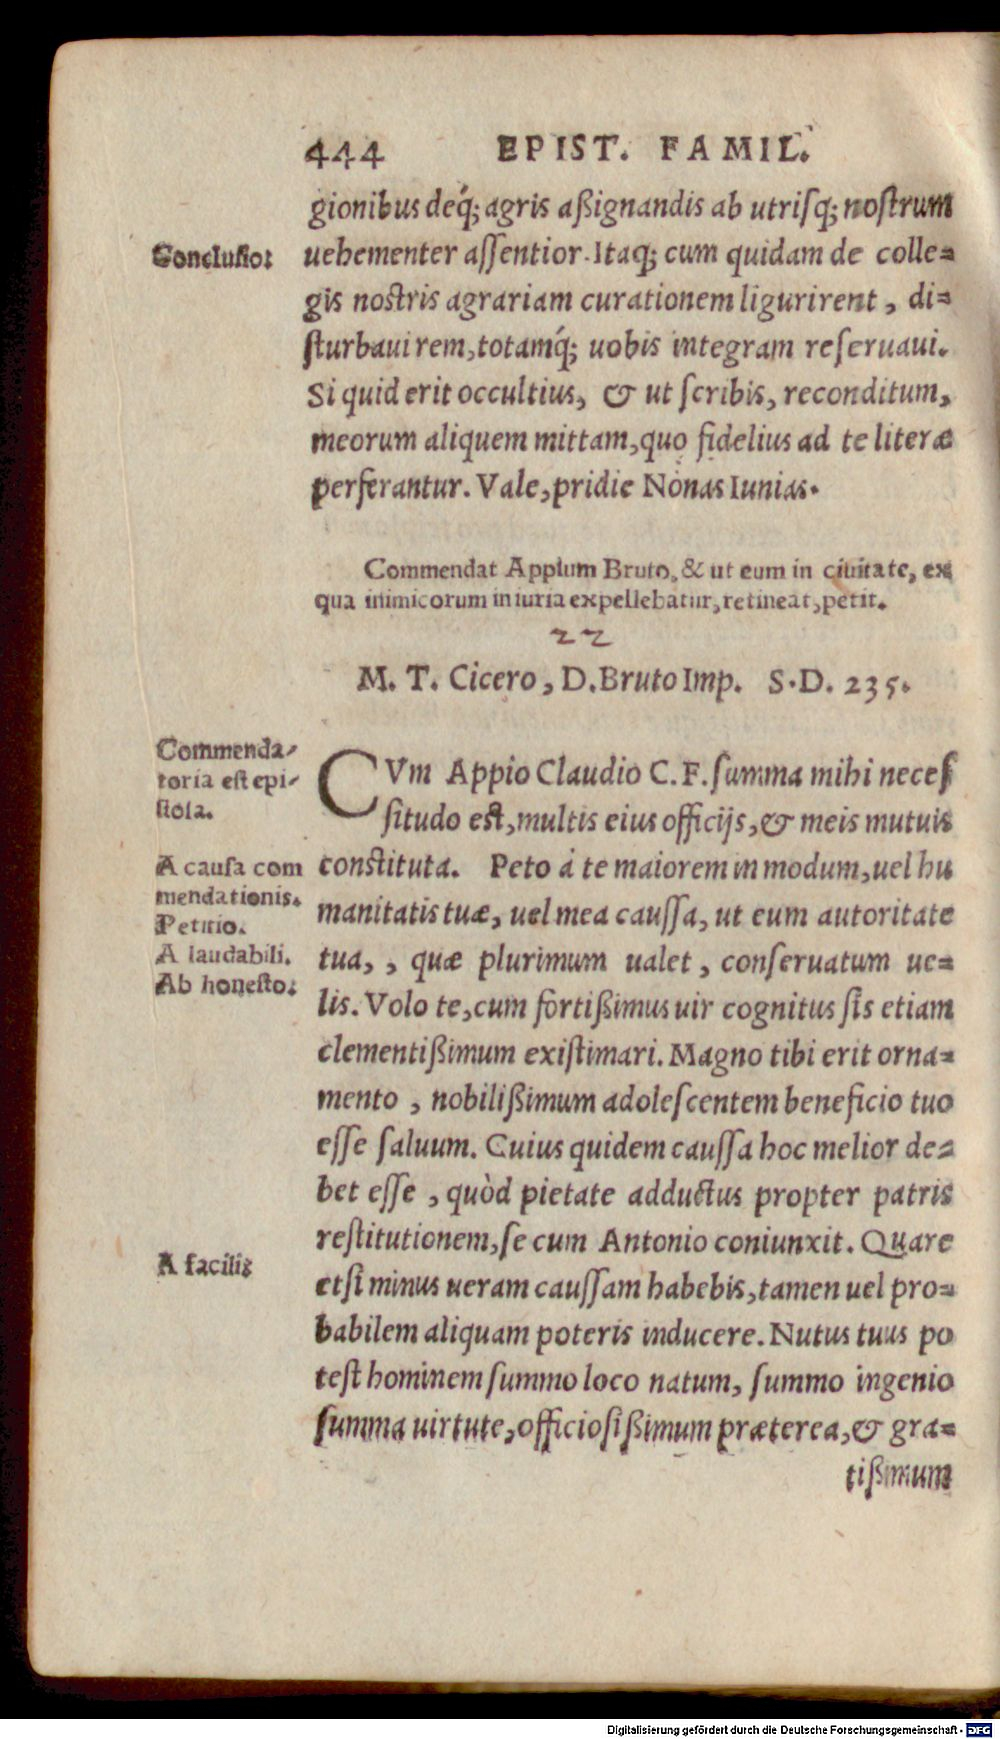 444 EPIST. FAMIL.
gionibus deq́; agris aßignandis ab utriſq; noſtrum
Concluſio:
uehementer aſſentior. Itaq; cum quidam de colle=
gis noſtris agrariam curationem ligurirent, di=
ſturbaui rem, totamq́; uobis integram reſeruaui.
Si quid erit occultius, & ut ſcribis, reconditum,
meorum aliquem mittam, quo fidelius ad te literæ
perferantur. Vale, pridie Nonas Iunias.
Commendat Appium Bruto, & ut eum in ciuitate, ex
qua inimicorum iniuria expellebatur, retineat, petit.
22
M. T. Cicero, D. Bruto Imp. S. D. 235.
Commenda-
toria eſt epi-
ſtola.
CVm Appio Claudio C. F. ſumma mihi neceſ
ſitudo eſt, multis eius officijs, & meis mutuis
A cauſa com
mendationis.
Petitio.
A laudabili.
Ab honeſto:
conſtituta. Peto à te maiorem in modum, uel hu
manitatis tuæ, uel mea cauſſa, ut eum autoritate
tua, , quæ plurimum ualet, conſeruatum ue=
lis. Volo te, cum fortißimus uir cognitus ſis etiam
clementißimum exiſtimari. Magno tibi erit orna=
mento, nobilißimum adoleſcentem beneficio tuo
eſſe ſaluum. Cuius quidem cauſſa hoc melior de=
bet eſſe, quòd pietate adductus propter patris
reſtitutionem, ſe cum Antonio coniunxit. Quare
A facili:
etſi minus ueram cauſſam habebis, tamen uel pro=
babilem aliquam poteris inducere. Nutus tuus po
teſt hominem ſummo loco natum, ſummo ingenio
ſumma uirtute, officioſißimum præterea, & gra=
tißimum
Digitalisierung gefördert durch die Deutsche Forschungsgemeinschaft - DFG